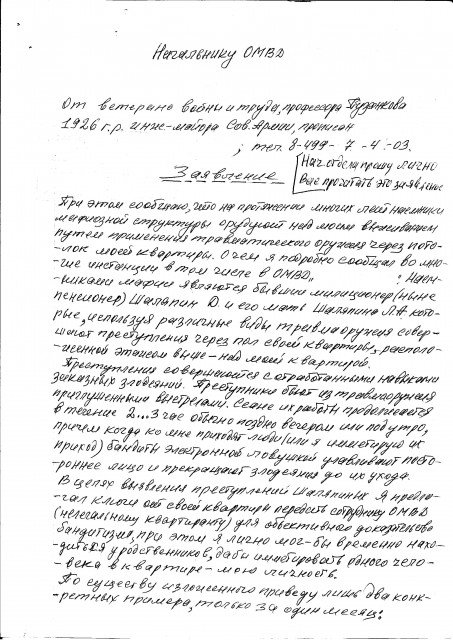 Начальнику ОМВД
От ветерана войны и труда, профессора Буданкова
1926 г.р. инж-майора Сов. Армии, прописан
; тел. 8-499- 7 -4 -03.
Нач. отдела прошу лично
Вас прочитать это заявление
Заявление
При этом сообщаю, что на протяжении многих лет наемники
мафиозной структуры орудуют над моим выживанием
путем применения травматического оружия через пото-
-лок моей квартиры. О чем я подробно сообщал во мно-
-гие инстанции в том числе в ОМВД,, : Наем-
-никами мафии являются бывший милиционер (ныне
пенсионер) Шаляпин Д. и его мать Шаляпина Л.А. кото-
-рые, используя различные виды травмаоружия совер-
-шают преступления через пол своей квартиры, располо-
-женной этажом выше - над моей квартирой.
Преступления совершаются с отработанными навыками
заказных злодеяний. Преступники бьют из травмаоружия
приглушенными выстрелами. Сеанс их работы продолжается
в течение 2...3 час обычно поздно вечером или под утро,
причем когда ко мне приходят люди (или я имитирую их
приход) бандиты электронной ловушкой улавливают посто-
роннее лицо и прекращают злодеяния до их ухода.
В целях выявления преступлений Шаляпиных Я предла-
-гал ключи от своей квартиры передать сотруднику ОМВД
(нелегальному квартиранту) для объективного доказательства
бандитизма, при этом я лично мог-бы временно нахо-
-диться у родственников, дабы имитировать одного чело-
-века в квартире - мою личность.
По существу изложенного приведу лишь два конк-
-ретных примера, только за один месяц: